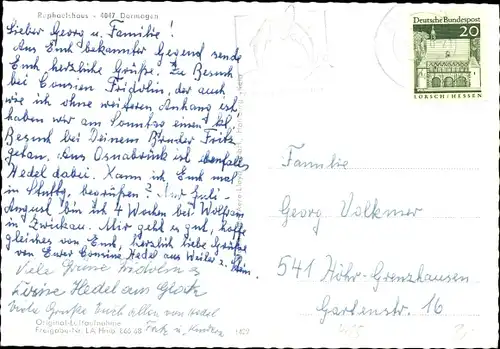 Raphaelshaus - 4047 Dormagen
Lieber Georg u. Familie!
Aus Euch bekannter Gegend sende
Euch herzliche Grüße. Zu Besuch
bei Cousin Fridolin, der auch
wie ich ohne weiteren Anhang ist
haben wir am Sonntag einen kl.
Besuch bei Deinem Bruder Fritz
getan. Aus Osnabrück ist ebenfalls
Hedel dabei. Kann ich Euch mal
in Stuttg. begrüßen? Juli-
August bin ich 4 Wochen bei Wolfram
in Zwickau. Mir geht es gut, hoffe
gleiches von Euch, herzlich liebe Grüße
von Eurer Cousine Hedel aus Weiler
Viele Grüße Fridolin
Cosine Hedel aus Glatz
Viele Grüße Euch allen von Hedel
Fritz u. Kindern
Original-Luftaufnahme
Freigabe-Nr. LA Hmb
Deutsche Bundespost
20
LORSCH/HESSEN
Familie
Georg Volkmer
541 Höhr-Grenzhausen
Gartenstr. 16